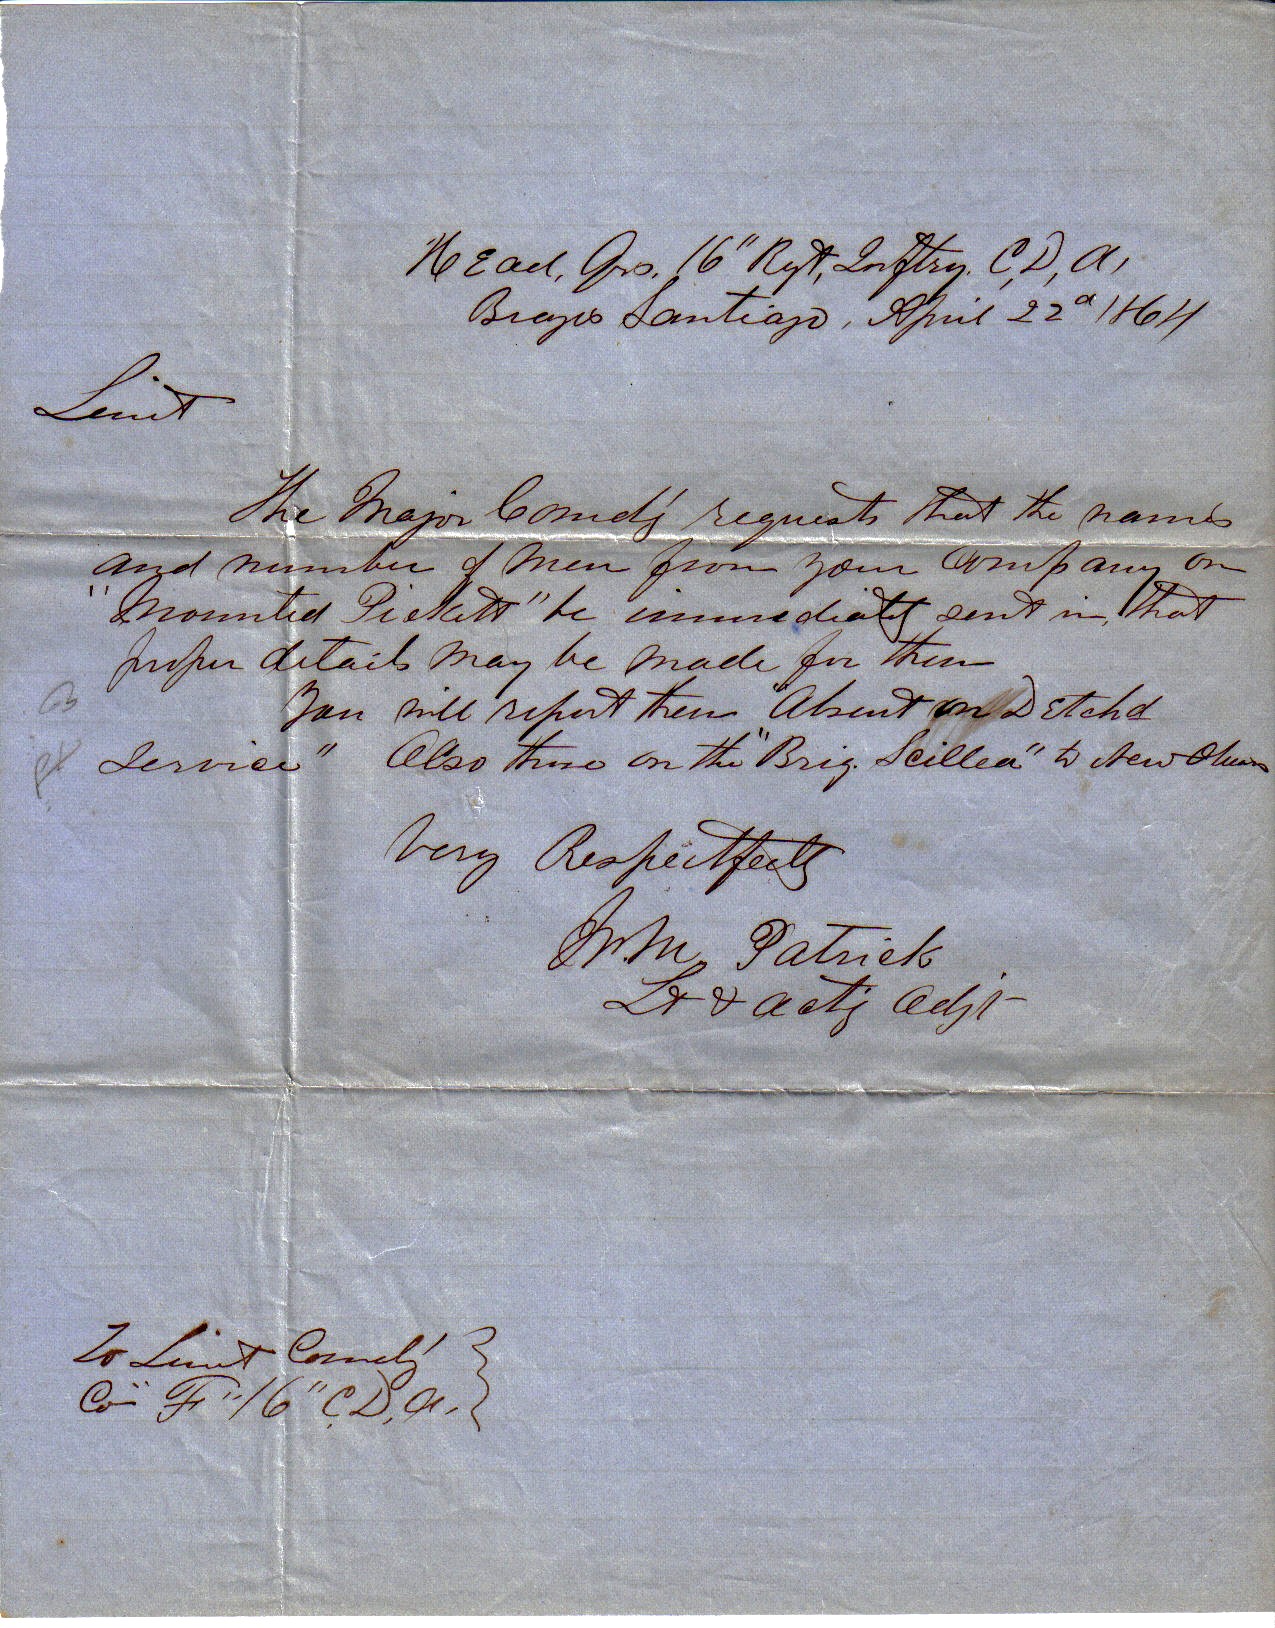 Head, Qrs. 16" Regt, Inftry. C, D, A,
Brazos Santiago, April 22d 1864
Lieut
The Major Comd'g requests that the names
and number of men from your Company on
"Mounted Pickett" be immediatly sent in, that
proper details may be made for them
You will report them "Absent on Detchd
Service" Also those on the "Brig. Scillea" to New Orleans
Very Respectfully
Wm. Patrick
Lt & Act'g Adj't
To Lieut Comd'g
Co "F" 16" C, D, A,